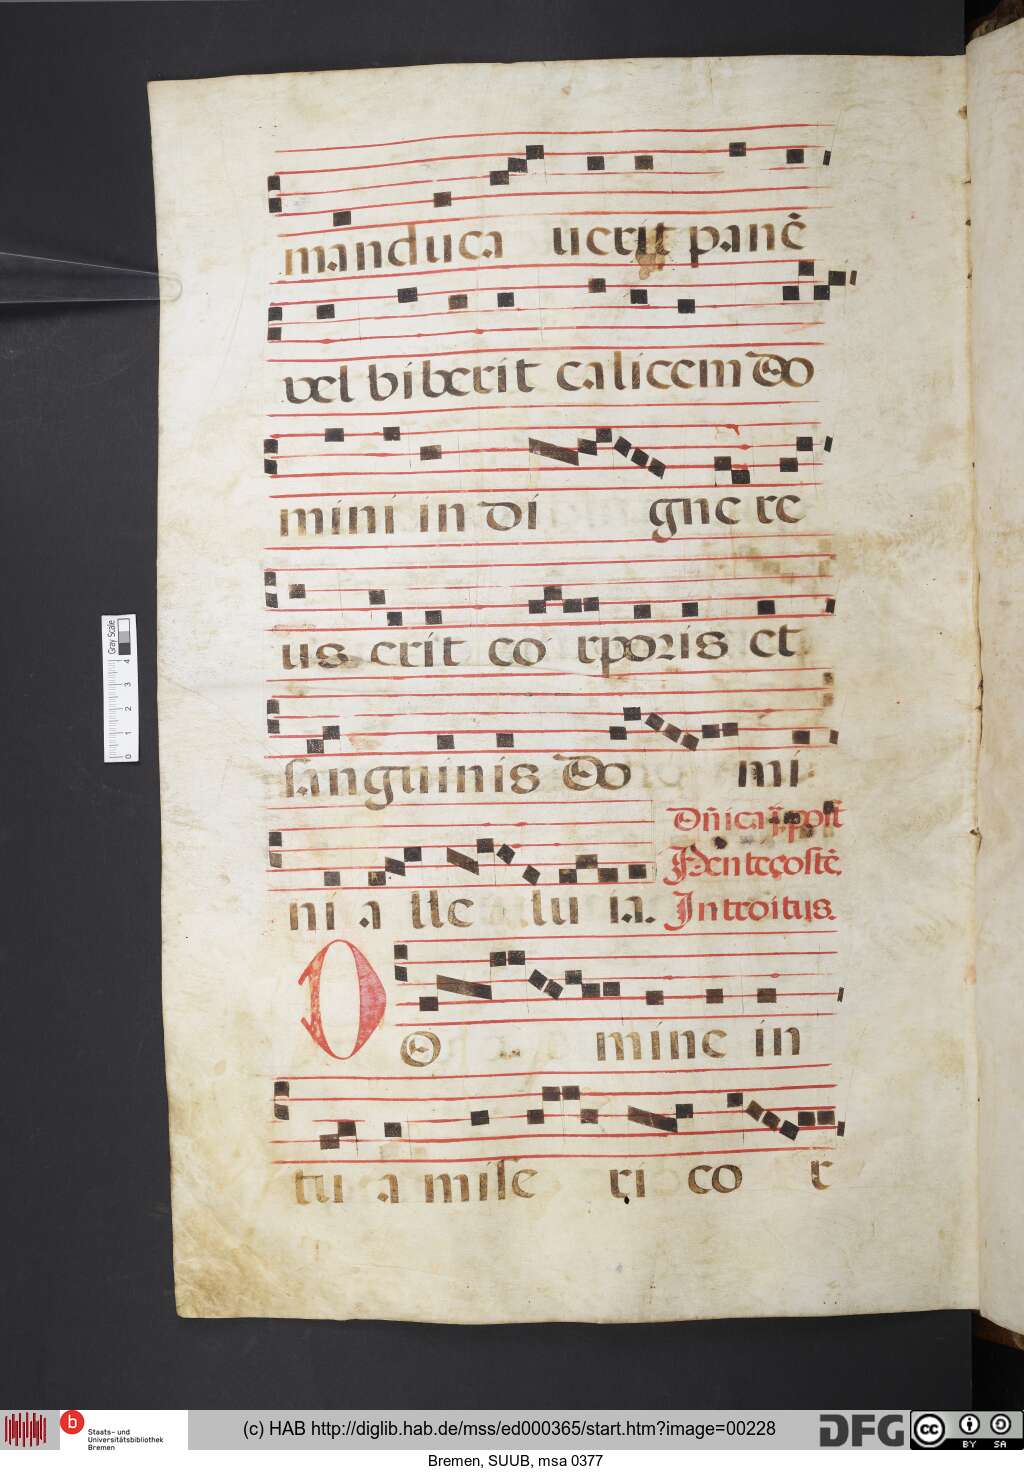 manduca uerit panē
vel biberit calicem do
mini in di gne re
us erit co rporis et
sanguinis do mi
ni a lle lu ia.
Dn̄ica j. post
Pentecostē.
Introitus.
D
O mine in
tu a mise ri co r
Gray Scale
0 1 2 3 4
b
Staats- und
Universitätsbibliothek
Bremen
(c) HAB http://diglib.hab.de/mss/ed000365/start.htm?image=00228
DFG
cc
BY SA
Bremen, SUUB, msa 0377